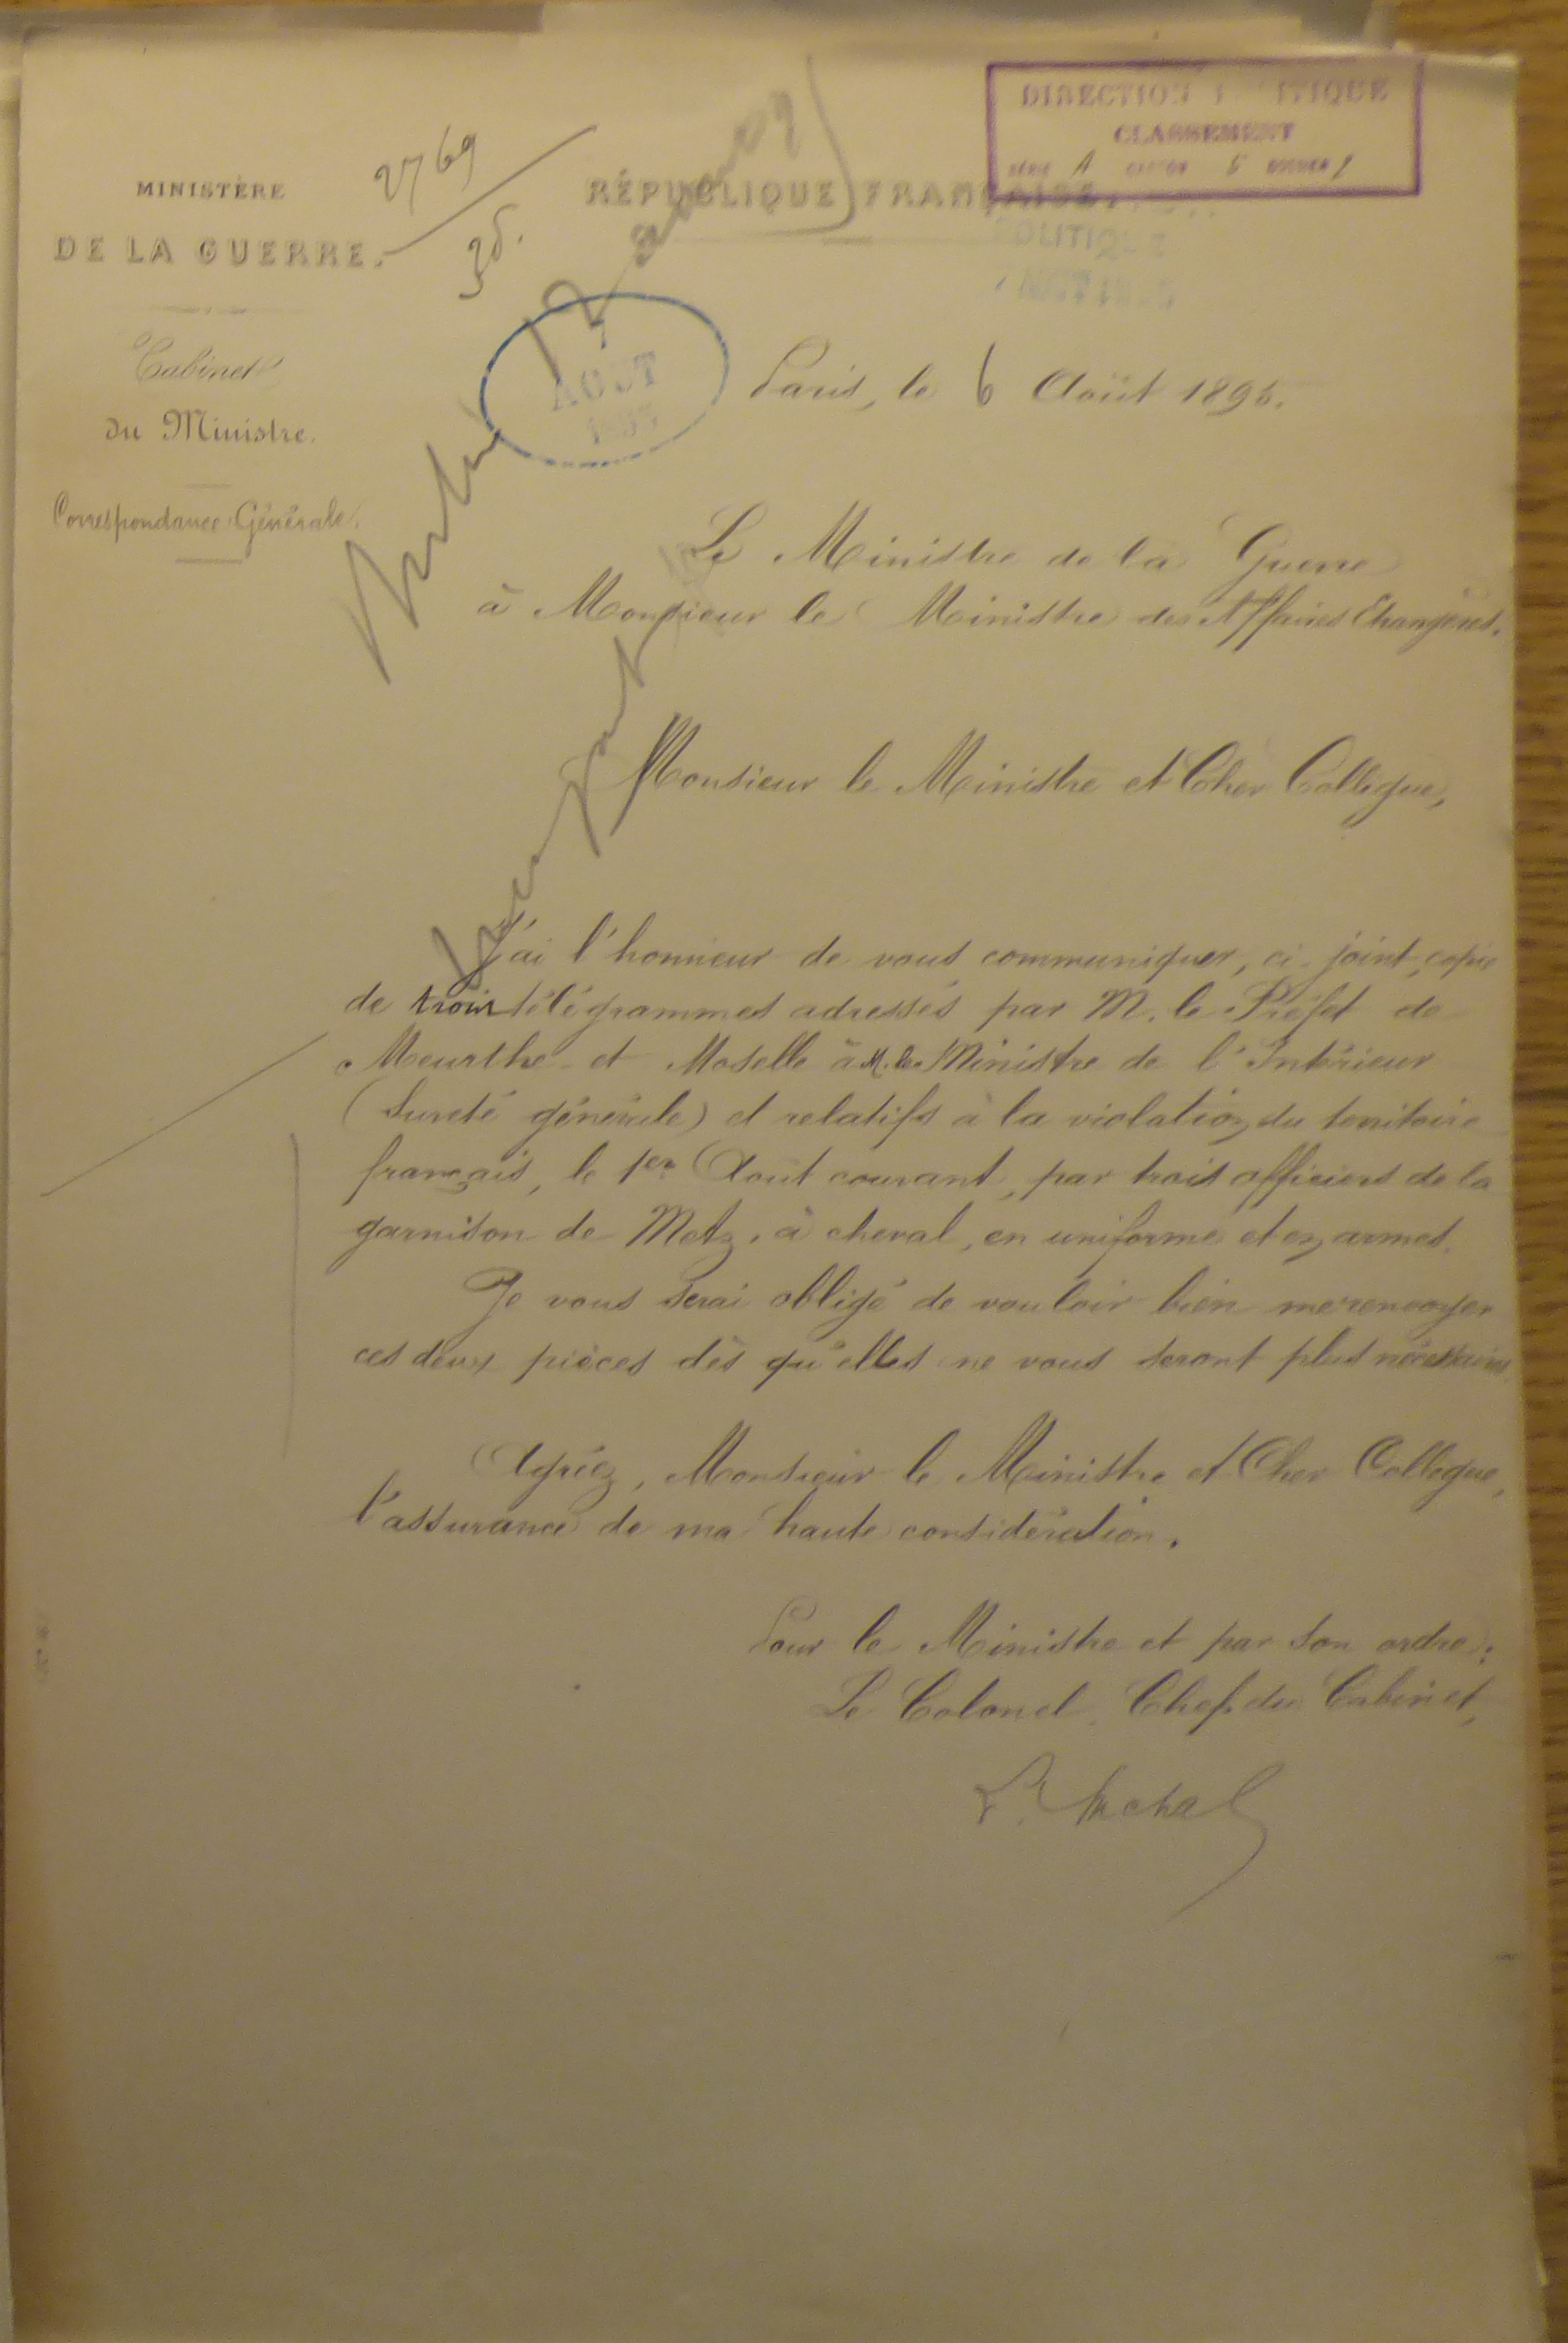 DIRECTION POLITIQUE
CLASSEMENT
SÉRIE A CARTON 5 DOSSIER 1
MINISTÈRE
DE LA GUERRE.
2769
35.
RÉPUBLIQUE FRANÇAISE.
POLITIQUE
AOUT
7
AOUT
Cabinet
du Ministre.
Correspondance Générale.
Paris, le 6 Août 1895.
Le Ministre de la Guerre
à Monsieur le Ministre des Affaires Etrangères.
Monsieur le Ministre et Cher Collègue,
J'ai l'honneur de vous communiquer, ci-joint, copie
de trois télégrammes adressés par M. le Préfet de
Meurthe-et-Moselle à M. le Ministre de l'Intérieur
(Sureté générale) et relatifs à la violation du territoire
français, le 1er Août courant, par trois officiers de la
garnison de Metz, à cheval, en uniforme et en armes.
Je vous serai obligé de vouloir bien me renvoyer
ces deux pièces dès qu'elles ne vous seront plus nécessaires.
Agréez, Monsieur le Ministre et Cher Collègue,
l'assurance de ma haute considération.
Pour le Ministre et par son ordre:
Le Colonel Chef du Cabinet,